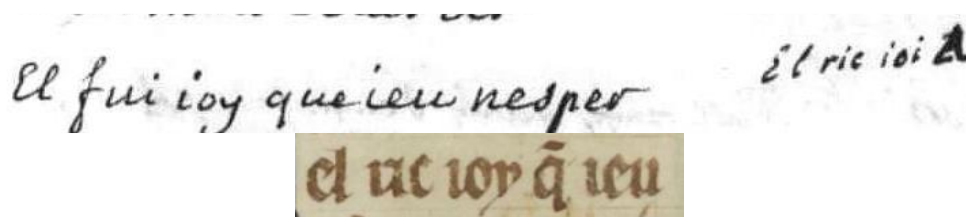 El fui ioy que ieu nesper
El ric ioi A
el ric ioy q̄ ieu